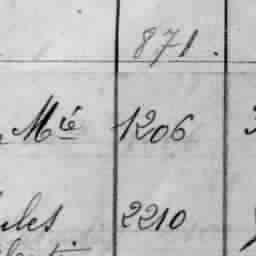 871.
Mié 1206
ules 2210